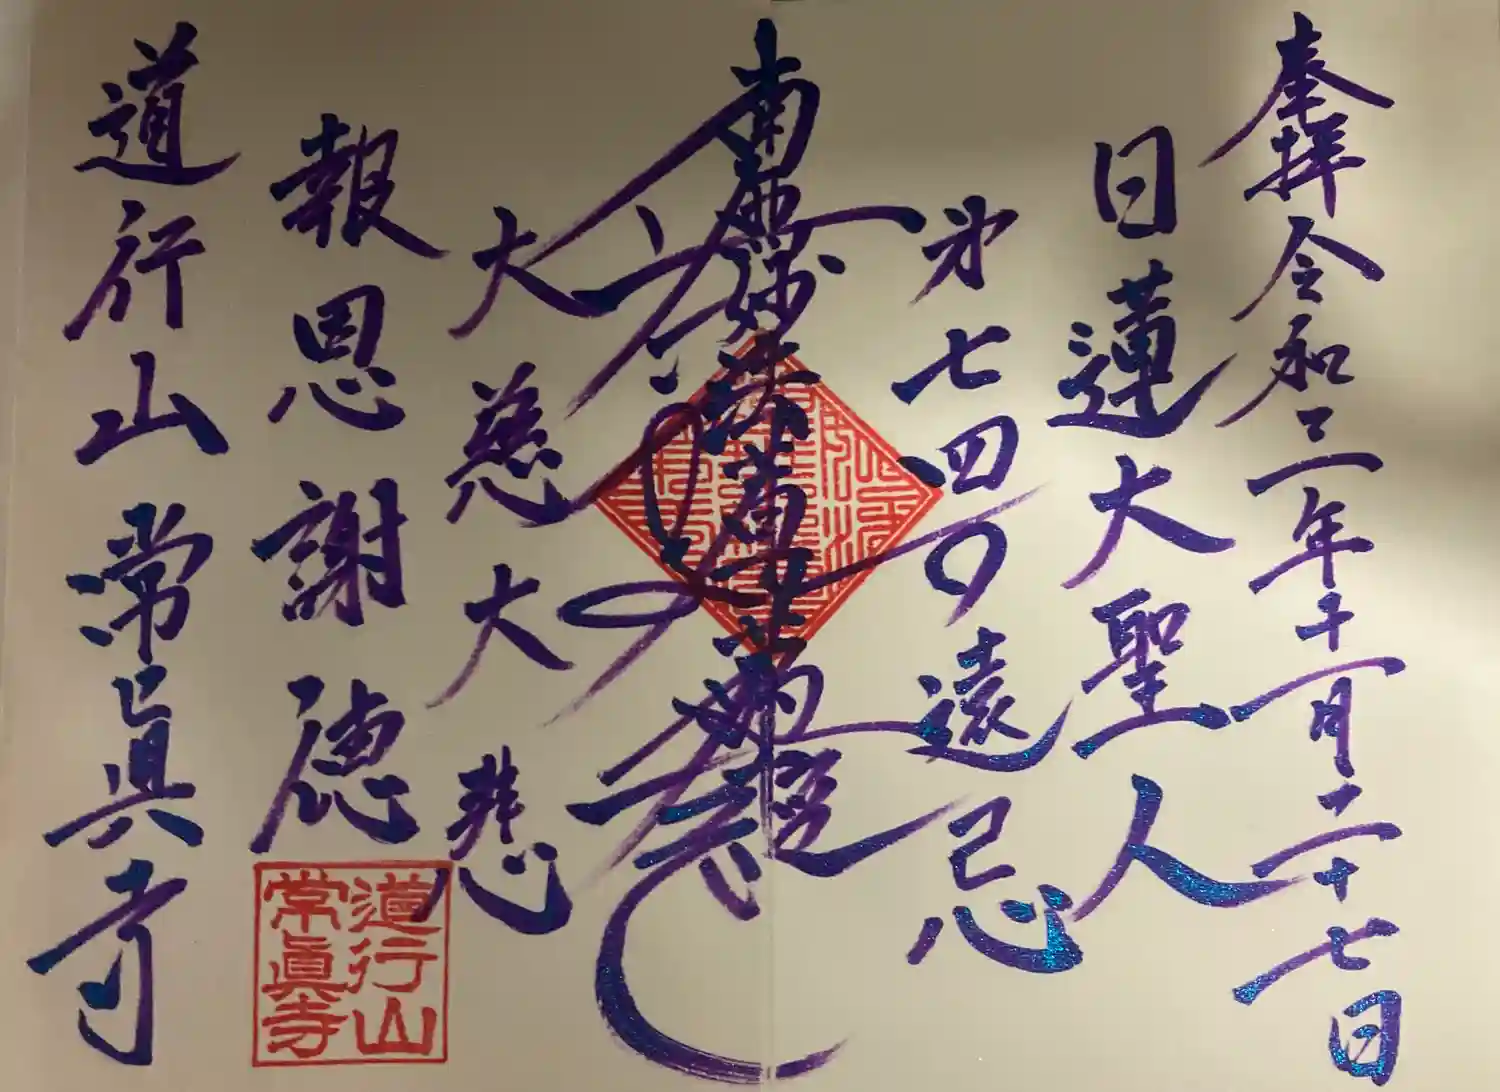 奉拝 令和三年十一月二十七日
日蓮大聖人
第七四〇遠忌
南無妙法蓮華經
大慈大悲
報恩謝徳
道行山常眞寺
道行山
常眞寺